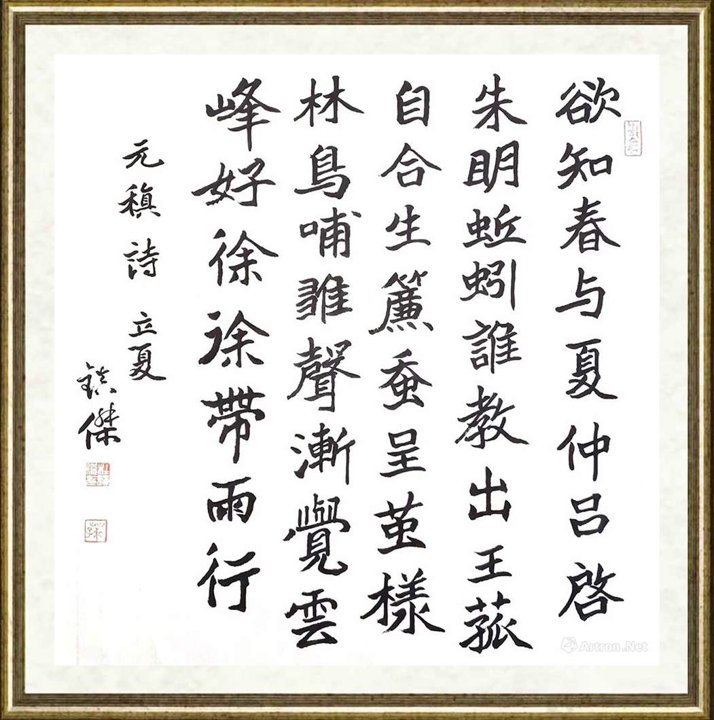 欲知春与夏仲吕啓
朱明蚯蚓誰教出王菰
自合生簾蚕呈茧樣
林鳥哺雛聲漸覺雲
峰好徐徐帶雨行
元稹詩 立夏
鎮傑
Artron.Net